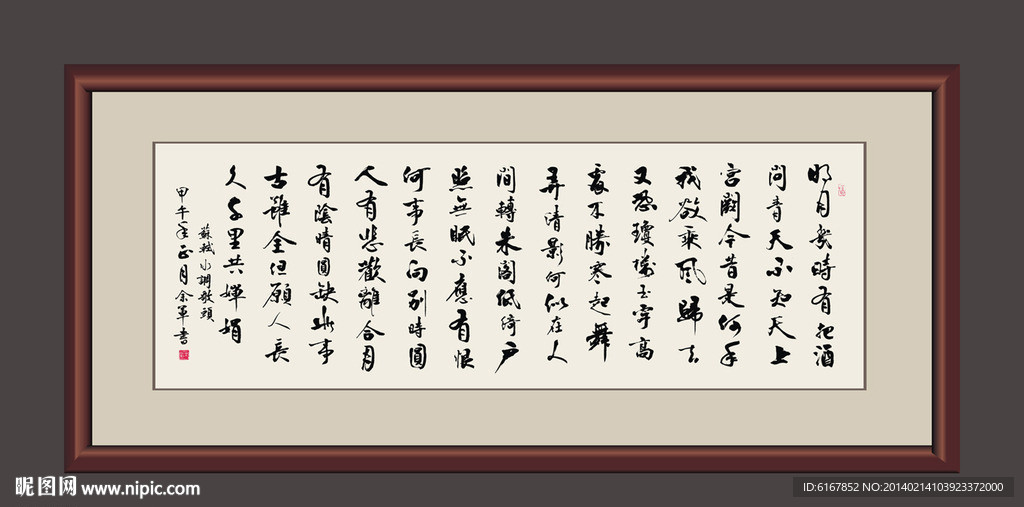 明月幾時有把酒
問青天不知天上
宮闕今昔是何年
我欲乘風歸去
又恐瓊樓玉宇高
處不勝寒起舞
弄清影何似在人
間轉朱閣低綺戶
照無眠不應有恨
何事長向別時圓
人有悲歡離合月
有陰晴圓缺此事
古難全但願人長
久千里共嬋娟
蘇軾水調歌頭
甲午年正月余軍書
昵图网 www.nipic.com
ID:6167852 NO:20140214103923372000